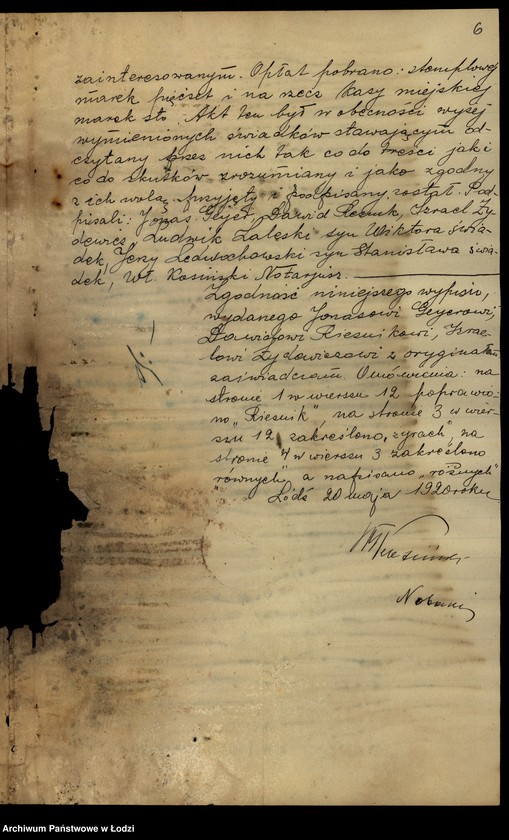 6
zainteresowanym. Opłat pobrano: stemplowej
marek pięćset i na rzecz kasy miejskiej
marek sto. Akt ten był w obecności wyżej
wymienionych świadków stawającym od-
czytany przez nich tak co do treści jak i
co do skutków zrozumiany i jako zgodny
z ich wolą przyjęty i podpisany został. Pod-
pisali: Jonas Geyer, Dawid Riesnik, Izrael Ży-
dewicz, Ludwik Zaleski syn Wiktora świa-
dek, Jerzy Leduchowski syn Stanisława świa-
dek, Wł. Kosiński Notarjusz.
Zgodność niniejszego wypisu,
wydanego Jonasowi Geyerowi,
Dawidowi Riesnikowi, Izrae-
lowi Żydewiczowi z oryginałem
zaświadczam. Omówienia: na
stronie 1 w wierszu 12 poprawio-
no „Riesnik", na stronie 3 w wier-
szu 12 zakreślono „zyrach", na
stronie 4 w wierszu 3 zakreślono
„równych" a napisano „różnych"
Łódź 20 maja 1920 roku
Archiwum Państwowe w Łodzi